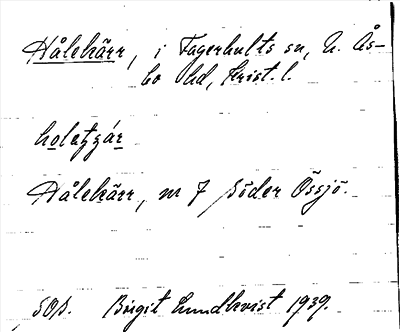 Hålekärr, i Fagerhults sn, N. Ås-
bo hd, Krist. l.
Hålekärr, nr 7 Söder Össjö.
SOS. Birgit Lundkvist 1939.